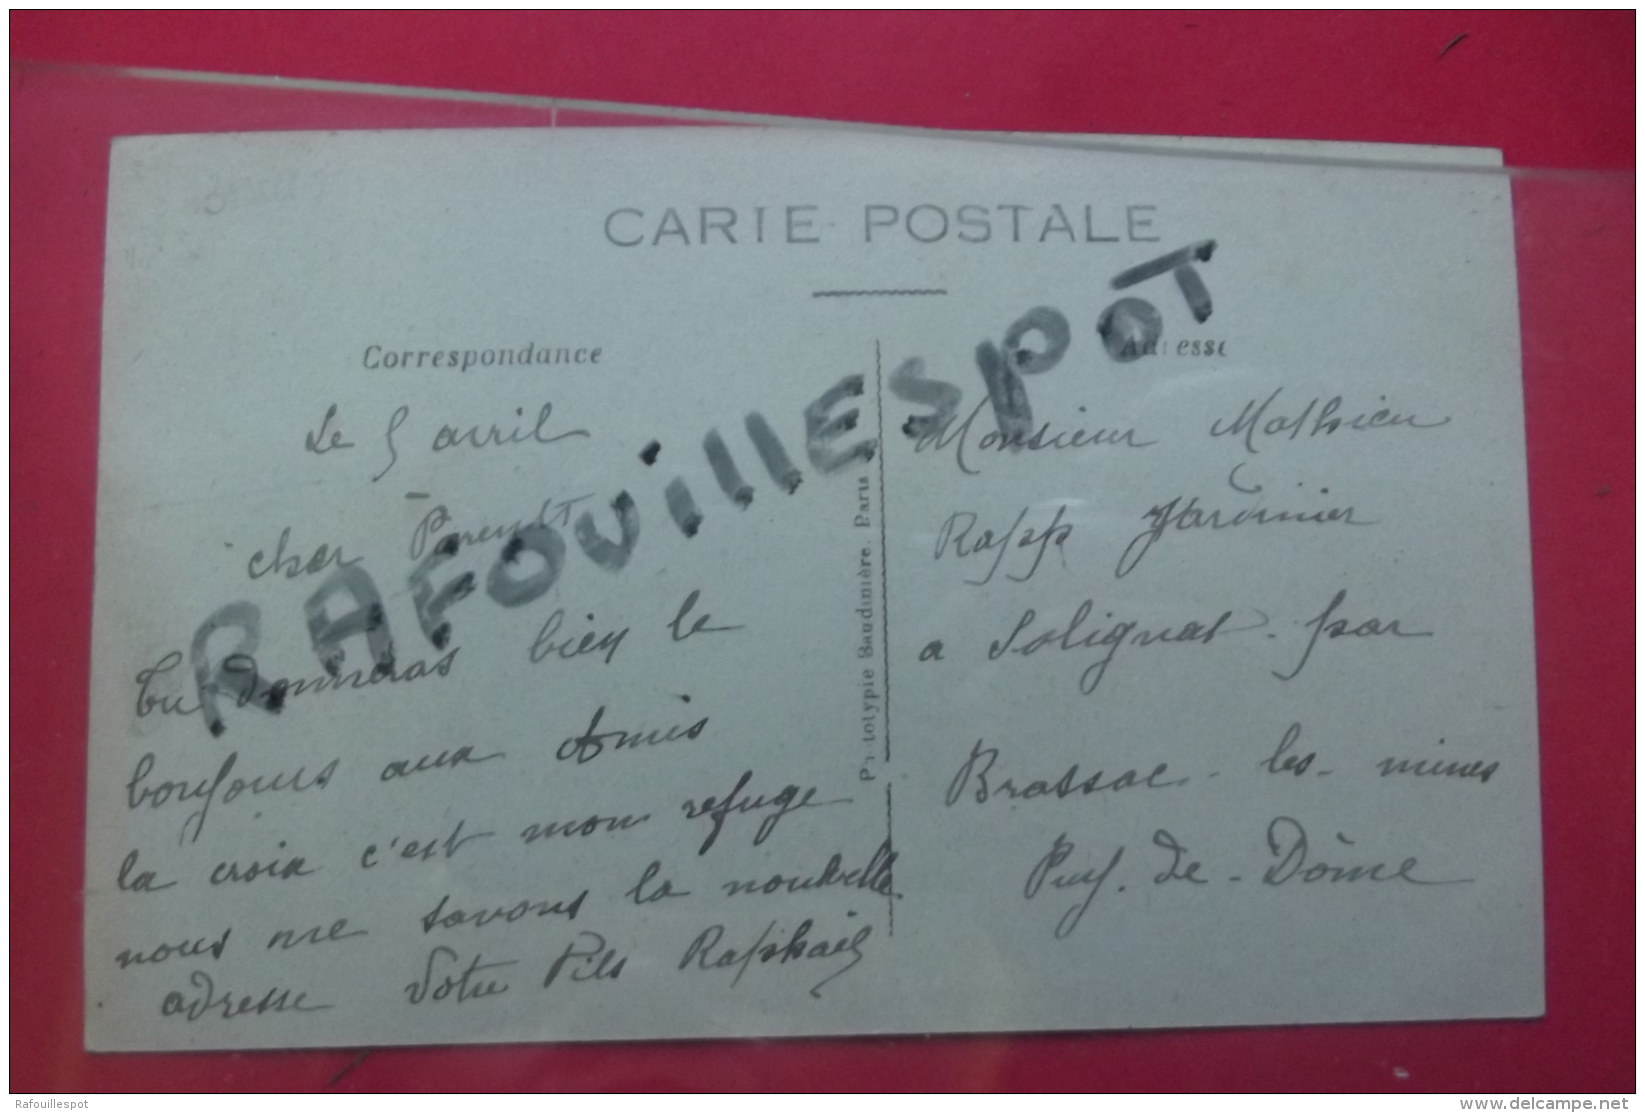 CARTE POSTALE
Correspondance
Le 5 avril
cher Parents
tu donneras bien le
bonjours aux Amis
la croix c'est mon refuge
nous ne savons la nouvelle
adresse Votre Fils Raphaël
Phototypie Baudinière. Paris
Adresse
Monsieur Mathieu
Rapp Jardinier
a Solignat. par
Brassac-les-mines
Puy-de-Dôme
RAFOUILLESPOT
Rafouillespot
delcampe.net